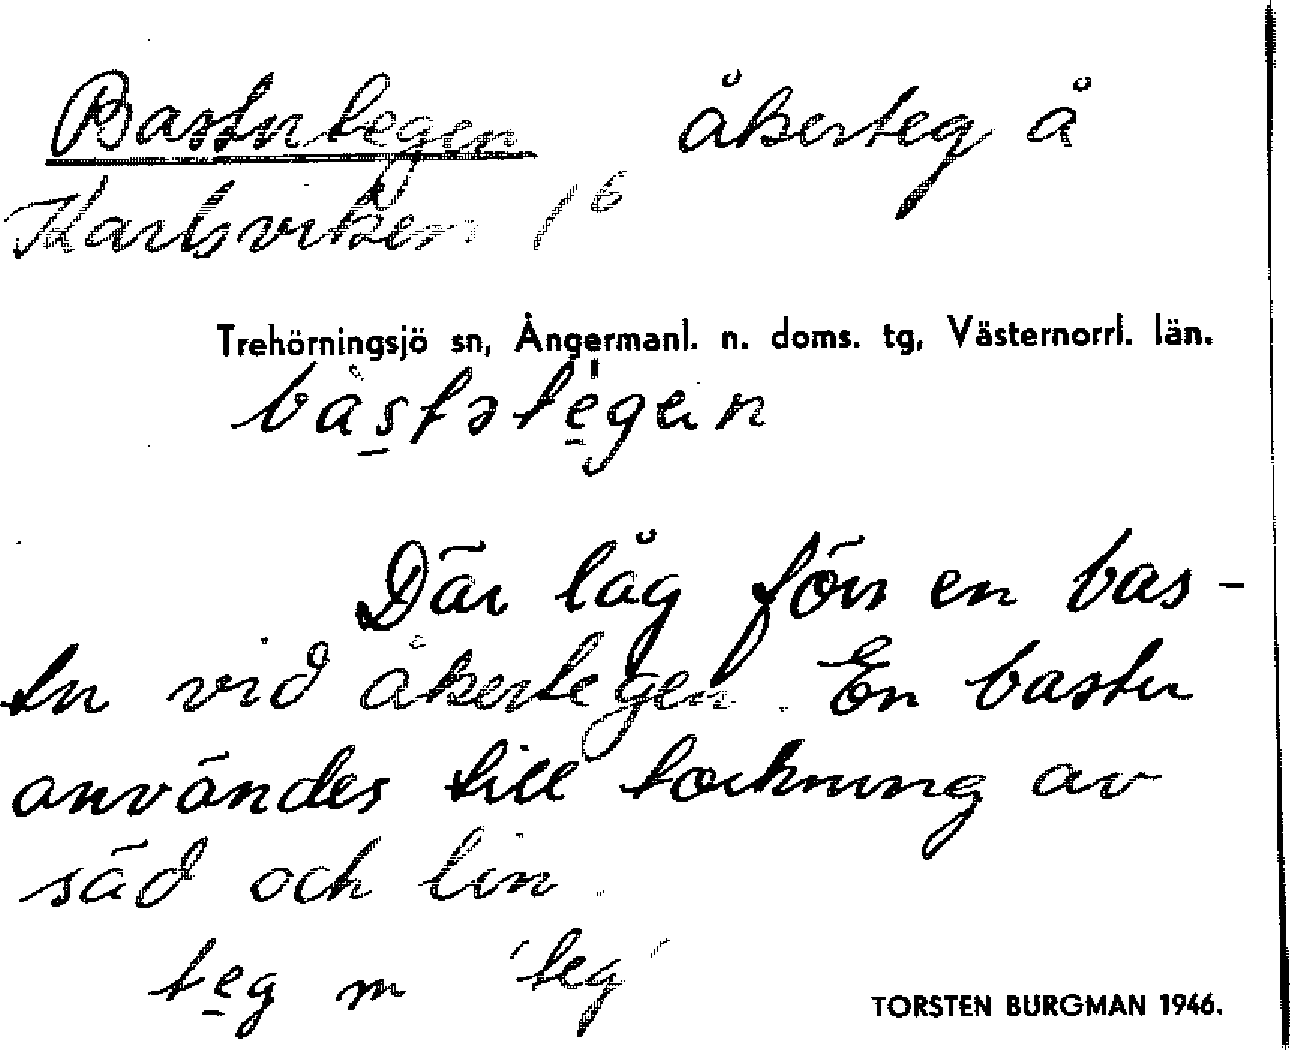 Bastutegen åkerteg å
Karlsviken 1⁶
Trehörningsjö sn, Ångermanl. n. doms. tg, Västernorrl. län.
bàstətegen
Där låg förr en bas-
tu vid åkertegen. En bastu
användes till torkning av
säd och lin.
teg m 'teg'
TORSTEN BURGMAN 1946.